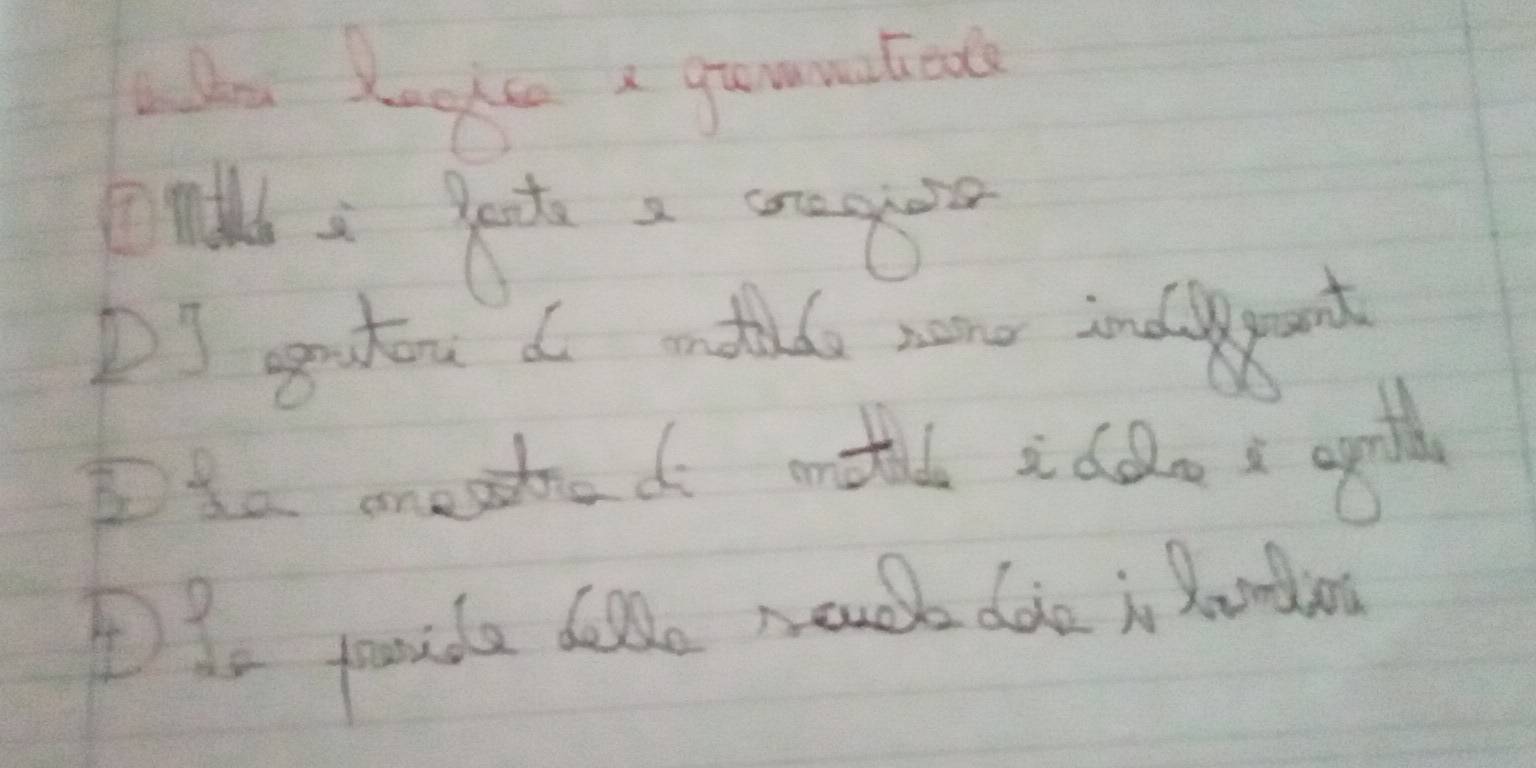 analisi logica e grammaticale
① Matilde è forte e coragiosa
② I genitori di matilde sono indifferenti
③ La maestra di matilde è dolce e gentile
④ La preside della scuola odia i bambini